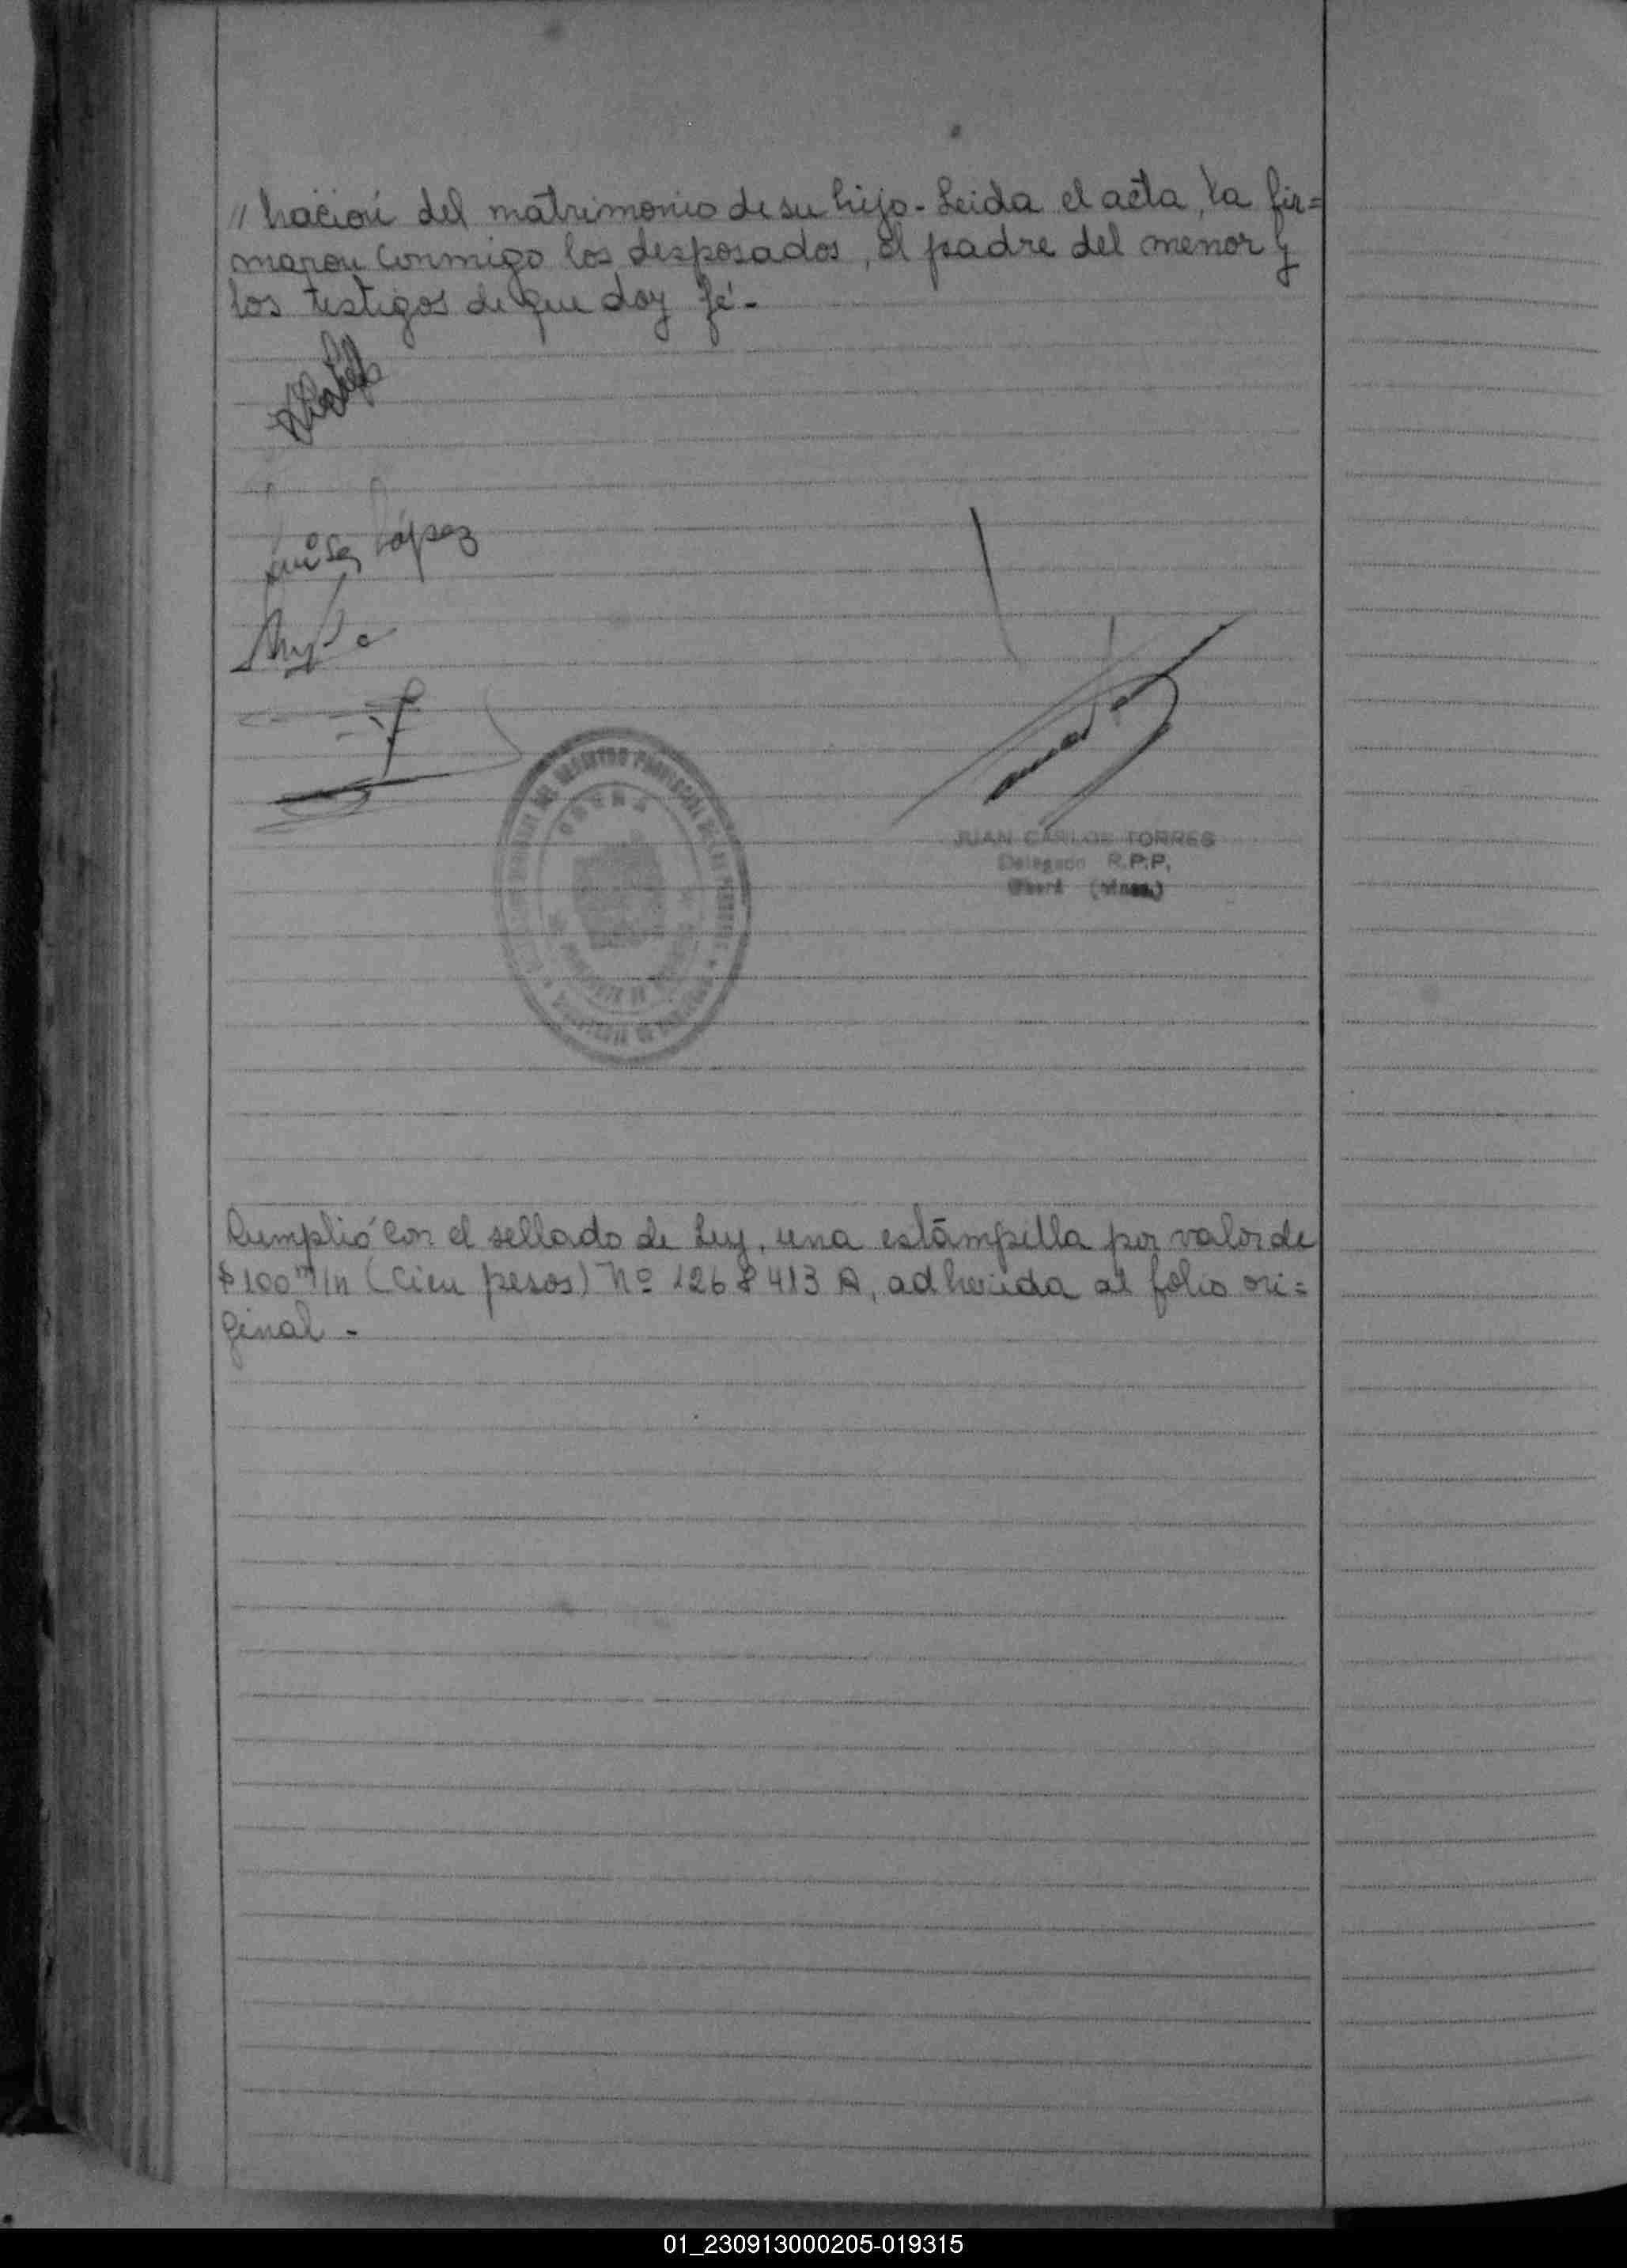 // hación del matrimonio de su hijo - Leida el acta, la fir=
maron conmigo los desposados, el padre del menor y
los testigos de que doy fé -
Luisa López
OBERA
JUAN CARLOS TORRES
Delegado R.P.P.
Oberá (Mnes.)
Cumplió con el sellado de Ley, una estámpilla por valor de
$ 100 m/n (Cien pesos) Nº 1268413 A, adherida al folio ori=
ginal -
01_230913000205-019315